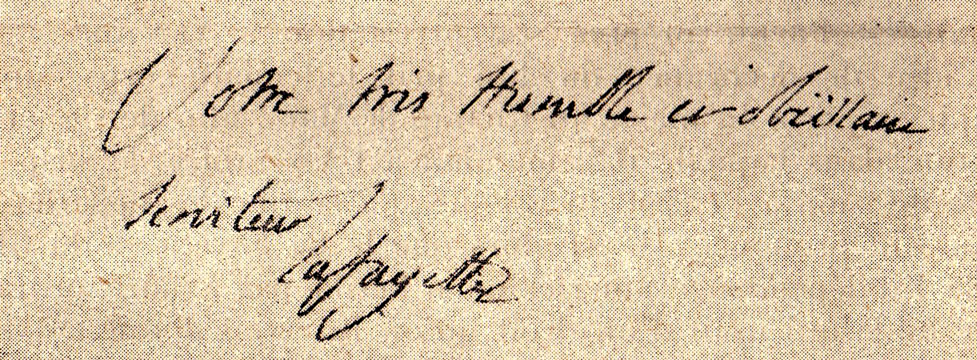 Votre très Humble et obéissant
serviteur
Lafayette